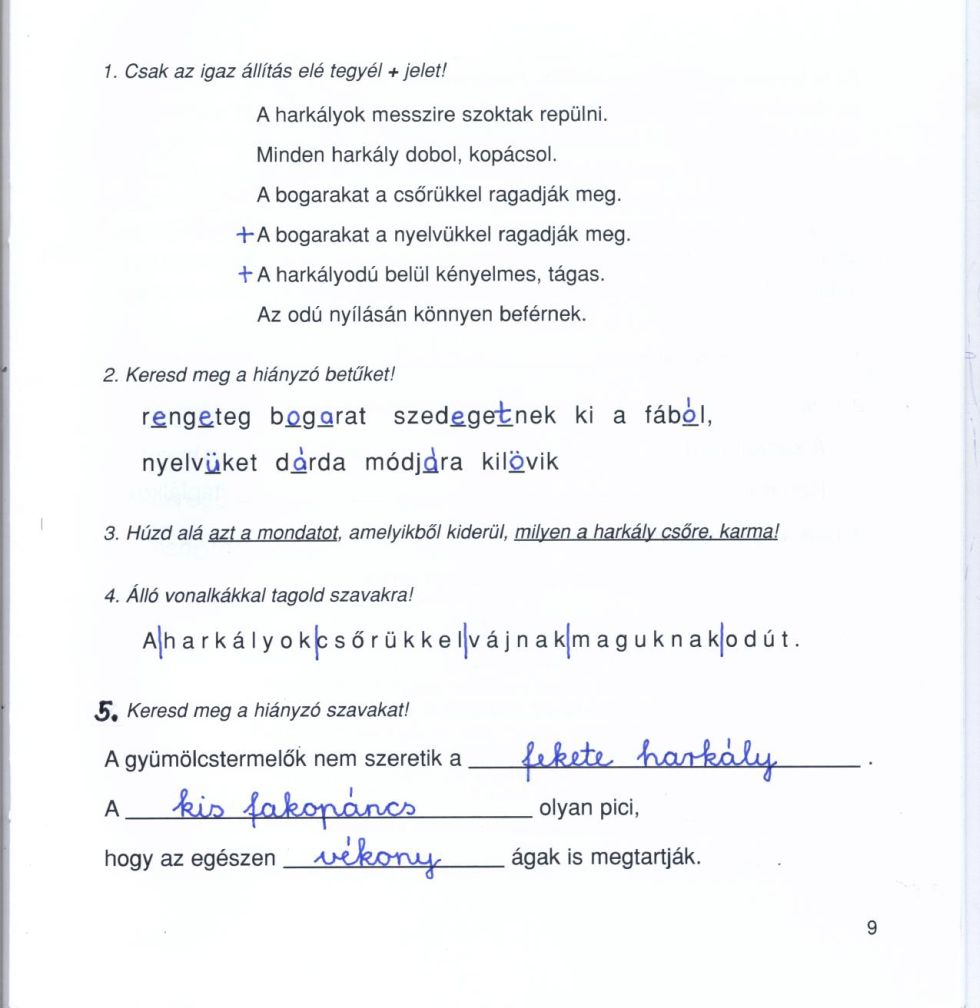 1. Csak az igaz állítás elé tegyél + jelet!
A harkályok messzire szoktak repülni.
Minden harkály dobol, kopácsol.
A bogarakat a csőrükkel ragadják meg.
+A bogarakat a nyelvükkel ragadják meg.
+A harkályodú belül kényelmes, tágas.
Az odú nyílásán könnyen beférnek.
2. Keresd meg a hiányzó betűket!
rengeteg bogarat szedegetnek ki a fából,
nyelvüket dárda módjára kilövik
3. Húzd alá azt a mondatot, amelyikből kiderül, milyen a harkály csőre, karma!
4. Álló vonalkákkal tagold szavakra!
A|harkályok|csőrükkel|vájnak|maguknak|odút.
5. Keresd meg a hiányzó szavakat!
A gyümölcstermelők nem szeretik a fekete harkály .
A kis fakopáncs olyan pici,
hogy az egészen vékony ágak is megtartják.
9